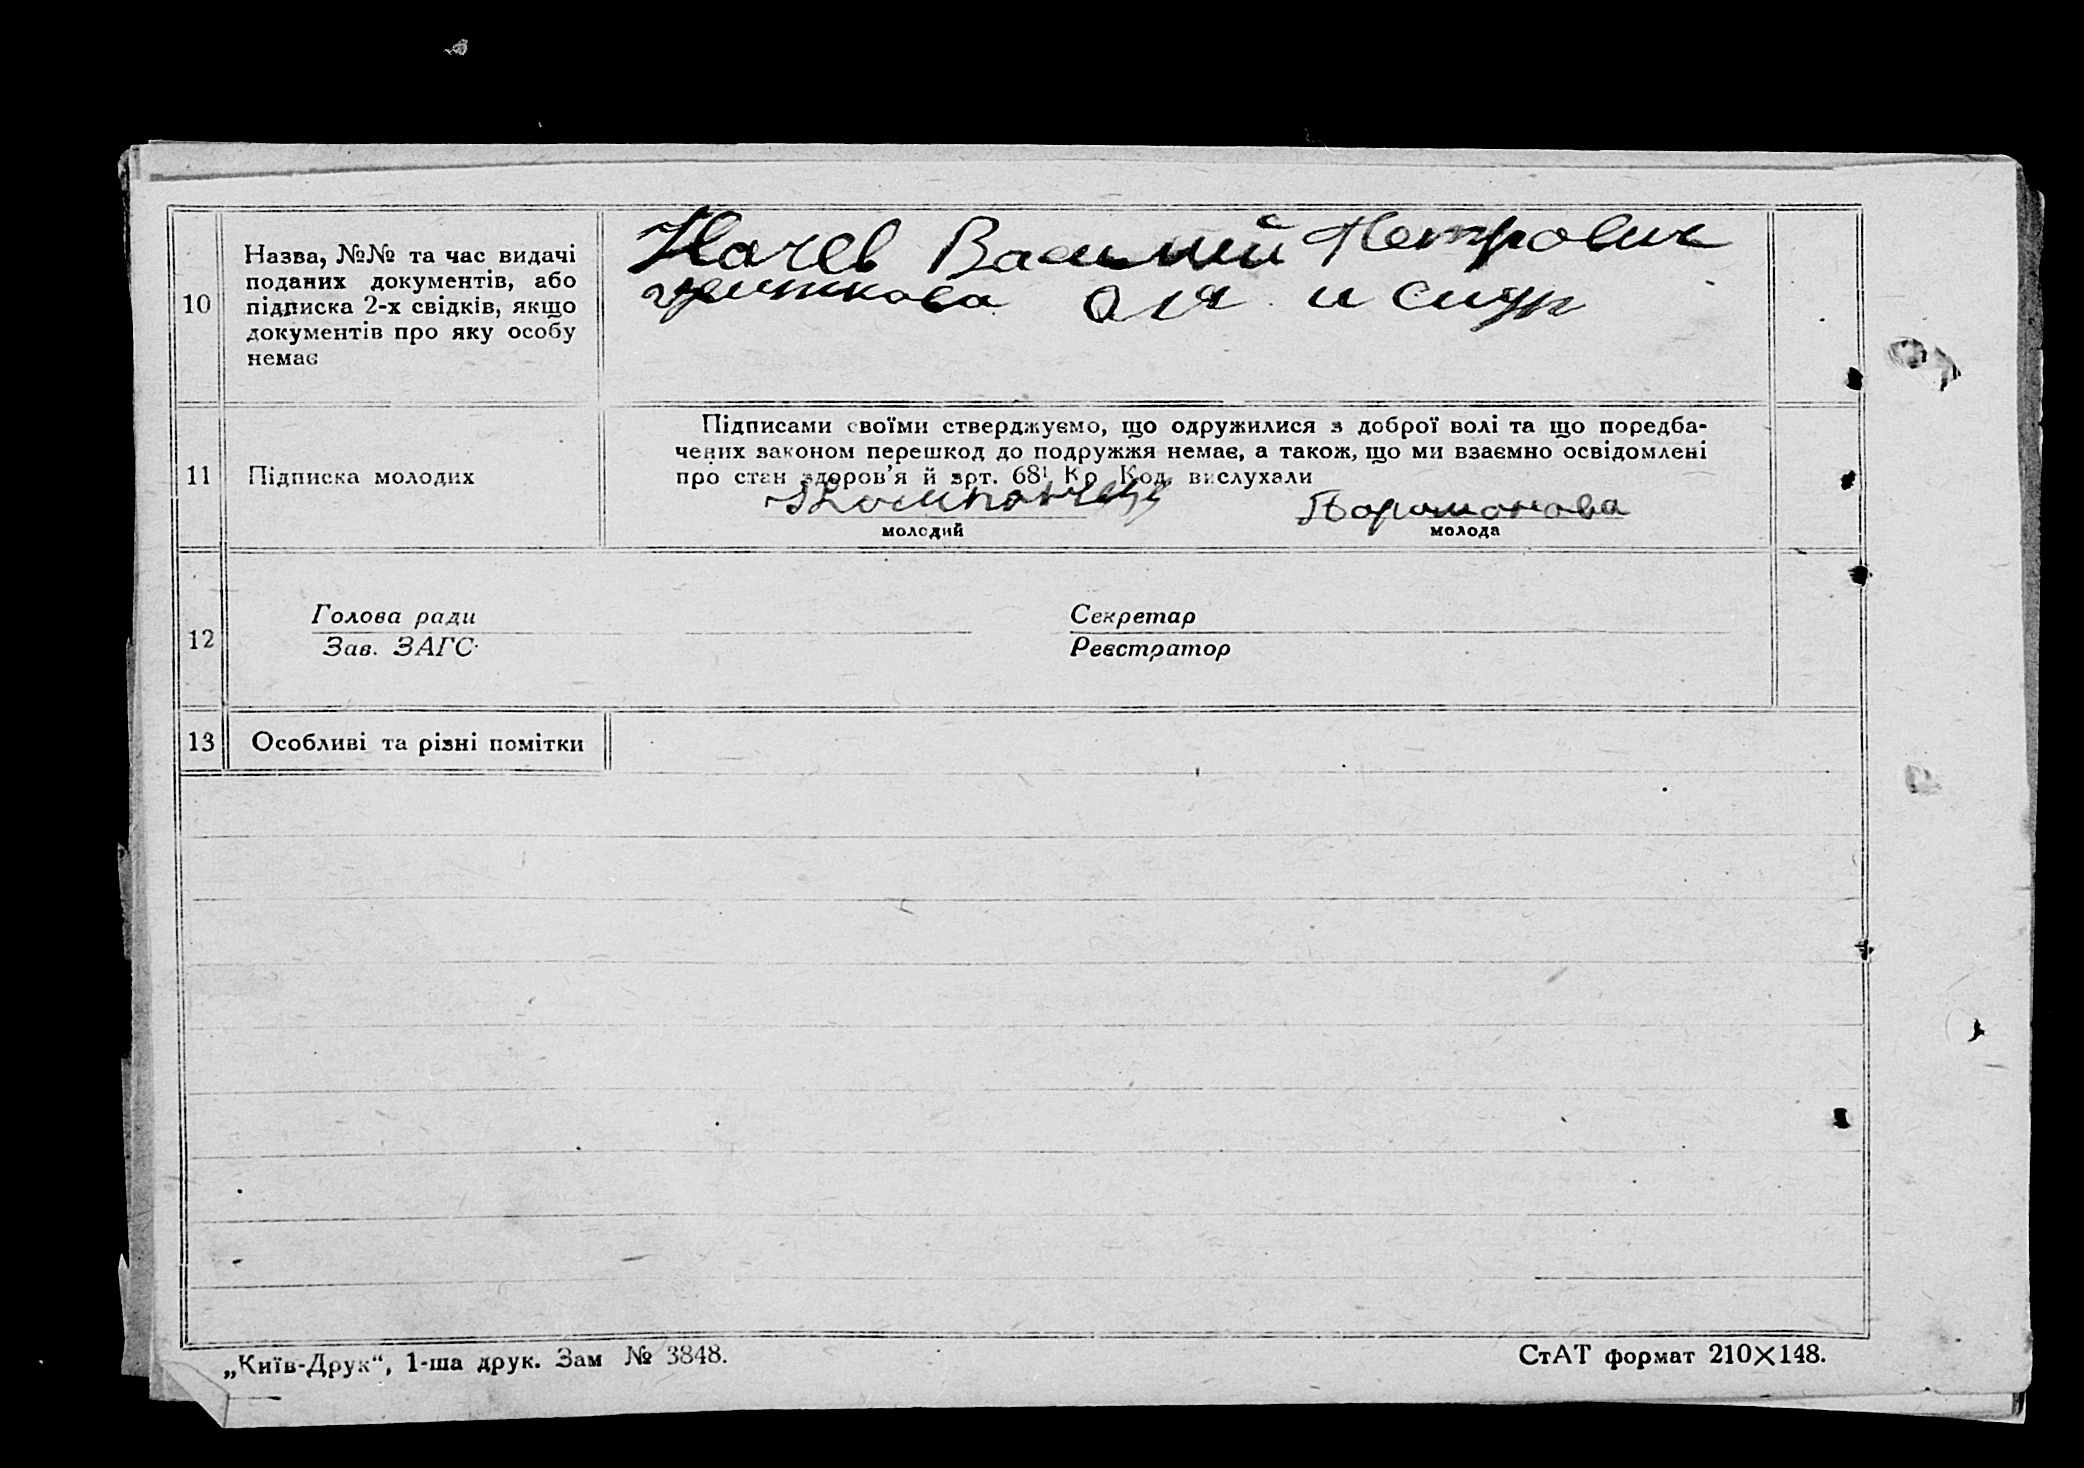 10
Назва, №№ та час видачі
поданих документів, або
підписка 2-х свідків, якщо
документів про яку особу
немає
Василий Петрович
11
Підписка молодих
Підписами своїми стверджуємо, що одружилися з доброї волі та що поредба-
чених законом перешкод до подружжя немає, а також, що ми взаємно освідомлені
про стан здоров’я й арт. 68¹ Кр. Код. вислухали
Парамонова
молодий
молода
12
Голова ради
Зав. ЗАГС
Секретар
Реєстратор
13
Особливі та різні помітки
„Київ-Друк“, 1-ша друк. Зам № 3848.
СтАТ формат 210×148.